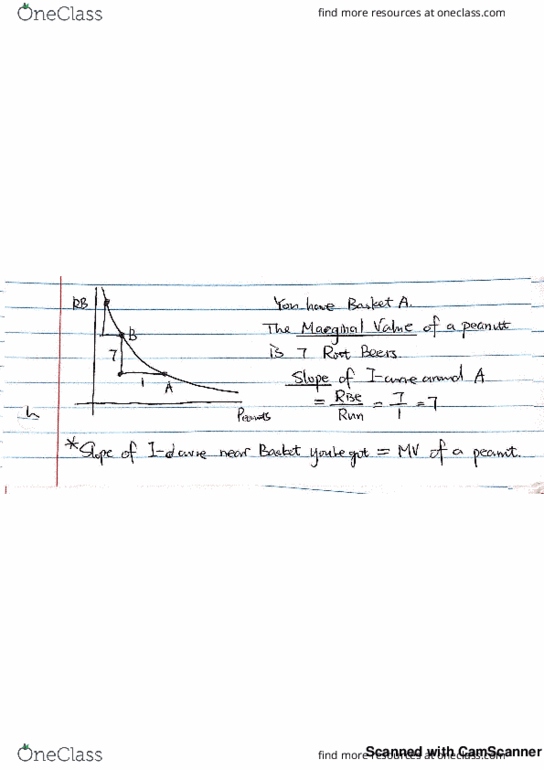 OneClass
find more resources at oneclass.com
RB
B
7
1
A
Peanuts
You have Basket A.
The Marginal Value of a peanutt
is 7 Root Beers.
Slope of I-curve around A
= Rise/Run = 7/1 = 7
*Slope of I-curve near Basket you've got = MV of a peanut.
OneClass
find more resources at oneclass.com
Scanned with CamScanner